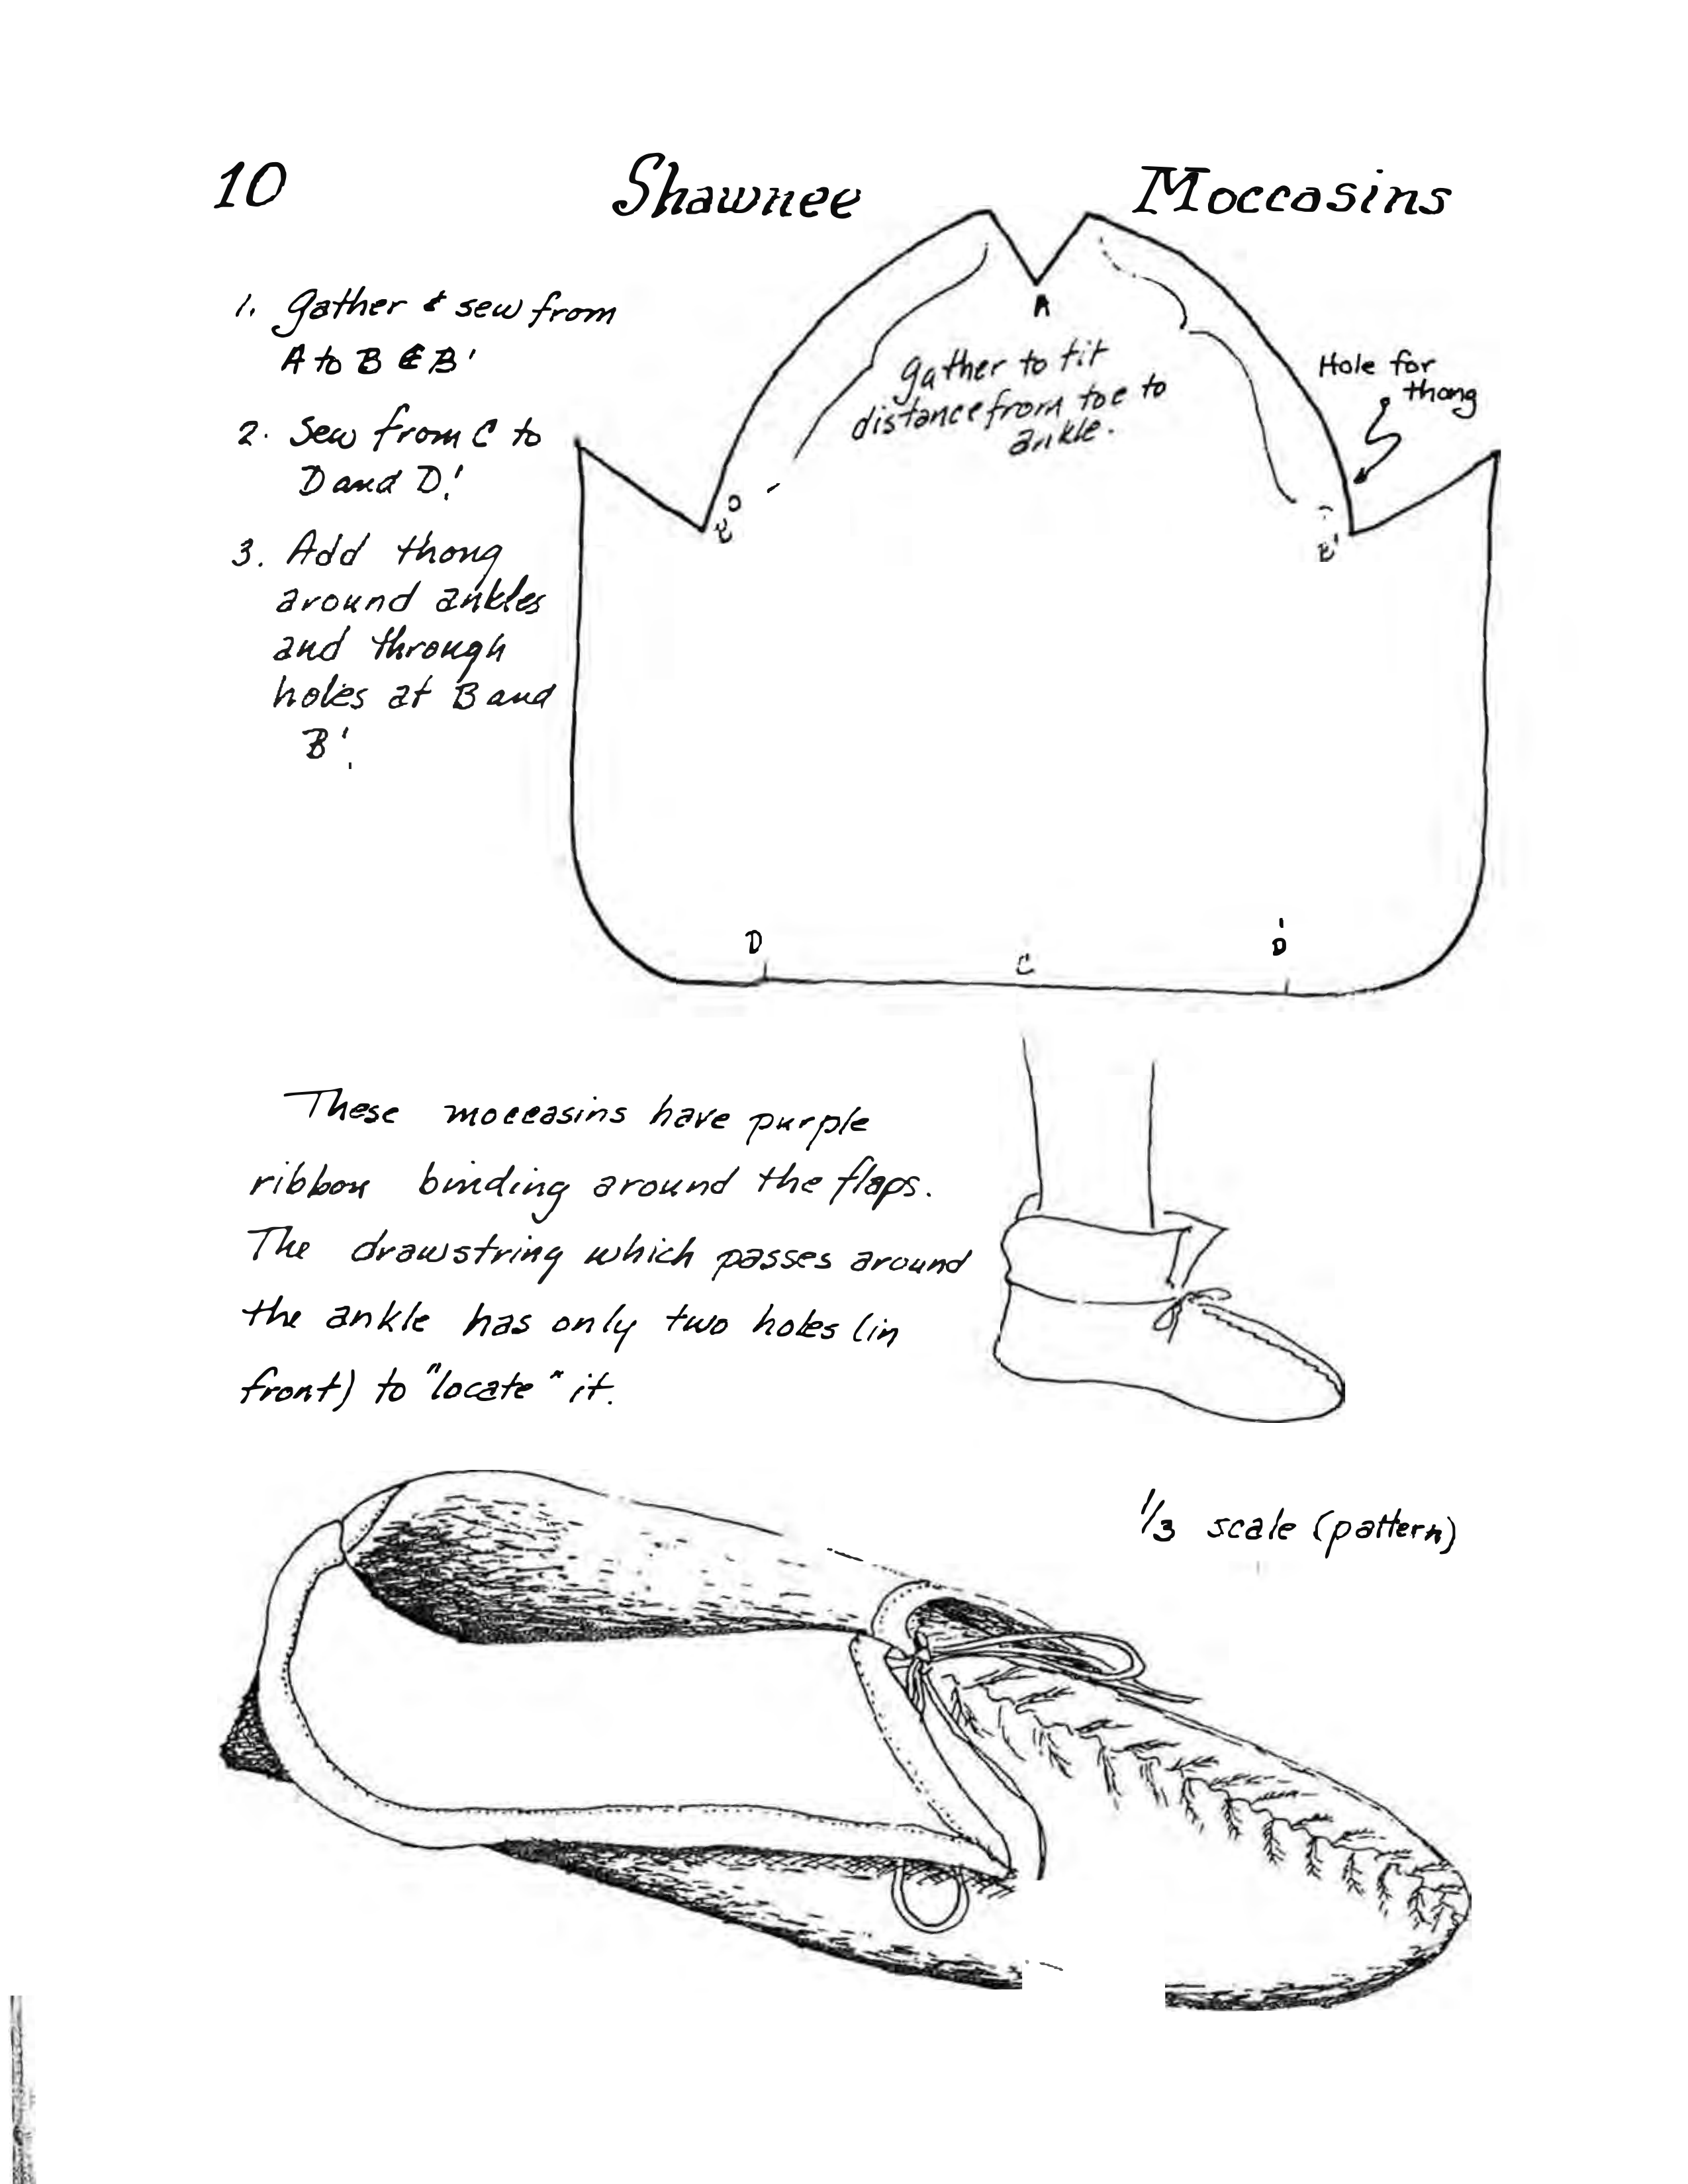 10 Shawnee Moccasins
1. Gather & sew from
A to B & B'
2. Sew from C to
D and D'.
3. Add thong
around ankles
and through
holes at B and
B'.
A
Gather to fit
distance from toe to
ankle.
Hole for
thong
B'
D
C
D'
These moccasins have purple
ribbon binding around the flaps.
The drawstring which passes around
the ankle has only two holes (in
front) to "locate" it.
1/3 scale (pattern)